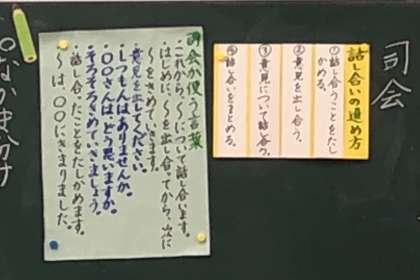 司会
話し合いの進め方
①話し合うことをたし
かめる。
②意見を出し合う。
③意見について話し合う。
④話し合いをまとめる。
司会が使う言葉
・これから、〜について話し合います。
・はじめに、〜を出し合ってから、次に
〜をきめていきます。
・意見を出してください。
・しつもんはありませんか。
・〇〇さんは、どう思いますか。
・そろそろきめていきましょう。
・話し合ったことをたしかめます。
〜は、〇〇にきまりました。
なかま分け